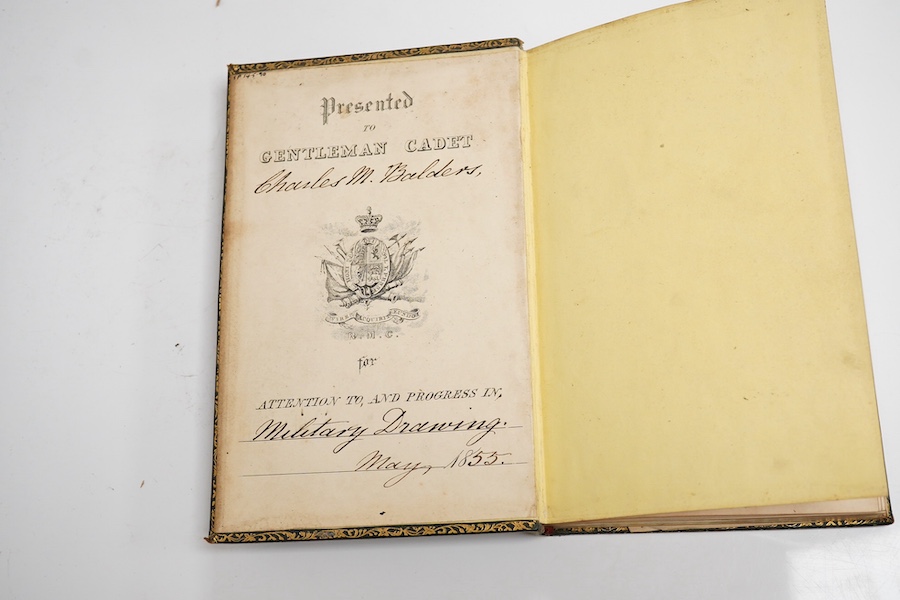 Presented
TO
GENTLEMAN CADET
Charles M. Balders,
VIRES ACQUIRIT EUNDO
R.M.C.
for
ATTENTION TO, AND PROGRESS IN,
Military Drawing.
May, 1855.